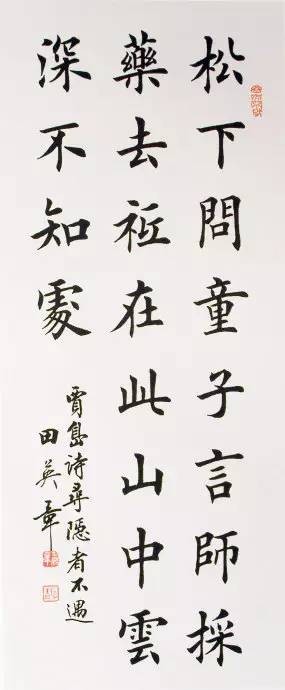 松下問童子言師採
藥去祗在此山中雲
深不知處
賈島诗尋隱者不遇
田英章